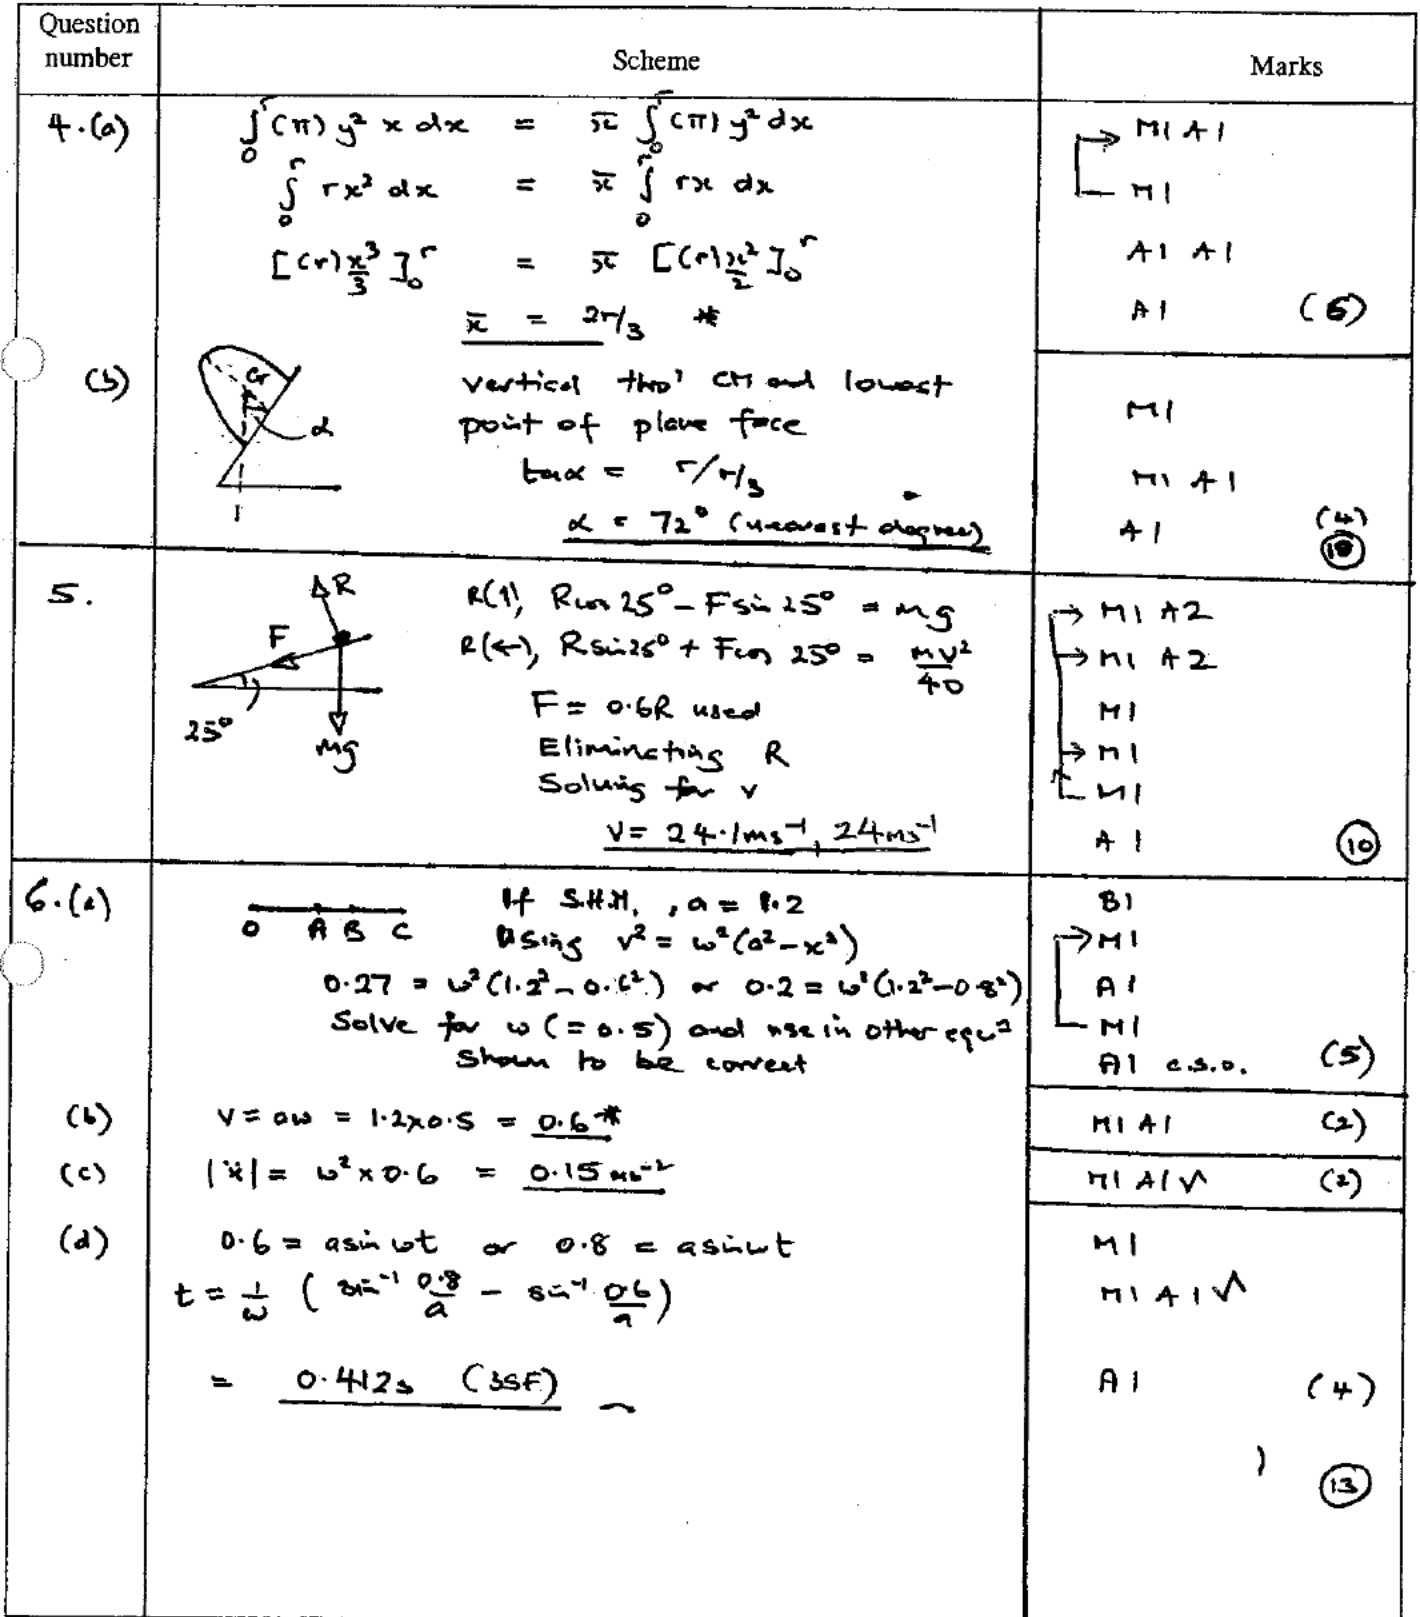 Question number Scheme Marks
4.(a) ∫₀ʳ (π) y² x dx = x̄ ∫₀ʳ (π) y² dx M1 A1
∫₀ʳ rx² dx = x̄ ∫₀ʳ rx dx M1
[(r) x³/3]₀ʳ = x̄ [(r) x²/2]₀ʳ A1 A1
x̄ = 2r/3 * A1 (6)
(b) G α vertical thro' CM and lowest M1
point of plane face
tan α = r/r/3 M1 A1
α = 72° (nearest degree) A1 (4)
(10)
5. R F 25° mg R(↑), R cos 25° – F sin 25° = mg M1 A2
R(←), R sin 25° + F cos 25° = mv²/40 M1 A2
F = 0.6R used M1
Eliminating R M1
Solving for v M1
v = 24.1 ms⁻¹, 24 ms⁻¹ A1 (10)
6.(a) O A B C If S.H.M., a = 1.2 B1
Using v² = ω²(a² – x²) M1
0.27 = ω²(1.2² – 0.6²) or 0.2 = ω²(1.2² – 0.8²) A1
Solve for ω (= 0.5) and use in other eqⁿ M1
Shown to be correct A1 c.s.o. (5)
(b) v = aω = 1.2×0.5 = 0.6 * M1 A1 (2)
(c) |ẍ| = ω² × 0.6 = 0.15 ms⁻² M1 A1√ (2)
(d) 0.6 = a sin ωt or 0.8 = a sin ωt M1
t = 1/ω ( sin⁻¹ 0.8/a – sin⁻¹ 0.6/a ) M1 A1√
= 0.412s (3SF) A1 (4)
(13)